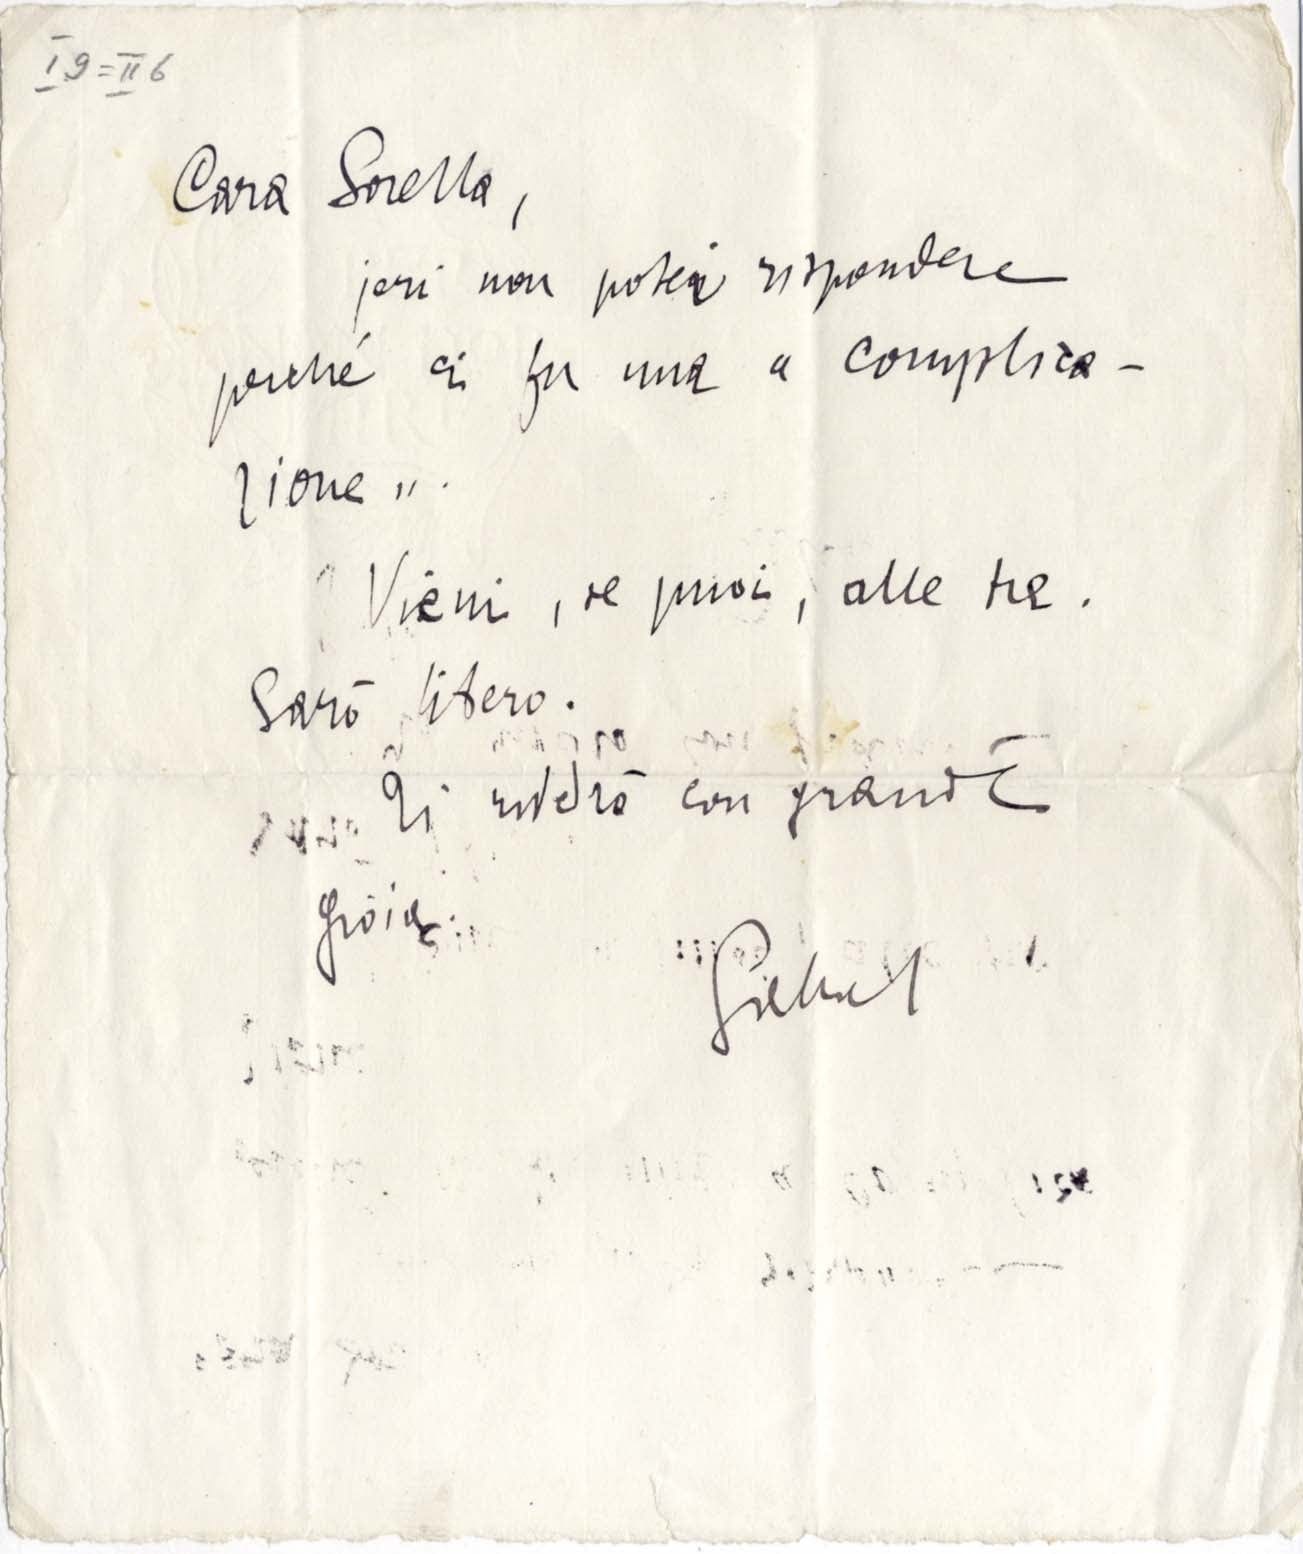 I 9 = II 6
Cara Sorella,
jeri non potei rispondere
perché ci fu una « complica-
zione ».
Vieni, se puoi, alle tre.
Sarò libero.
Ti rivedrò con grande
gioia.
Gabriel